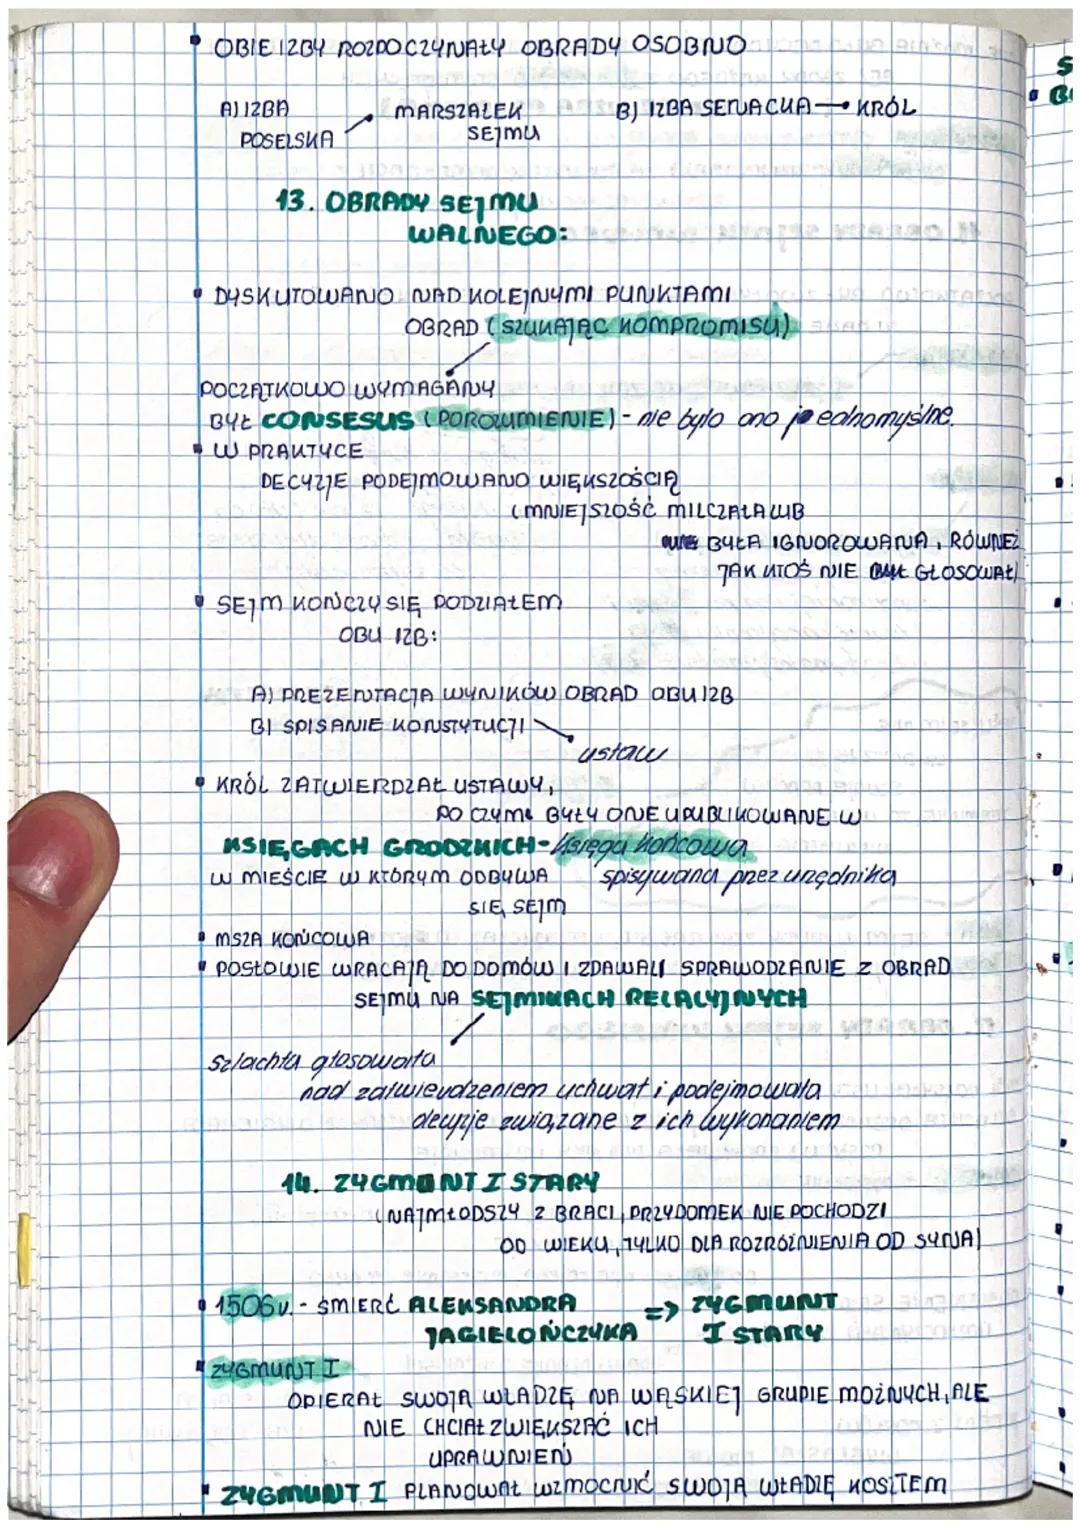 • OBIE IZBY ROZPOCZYNAŁY OBRADY OSOBNO
A) IZBA POSELSKA → MARSZAŁEK SEJMU
B) IZBA SENACKA → KRÓL
13. OBRADY SEJMU
WALNEGO:
• DYSKUTOWANO NAD KOLEJNYMI PUNKTAMI
OBRAD (SZUKAJĄC KOMPROMISU)
POCZĄTKOWO WYMAGANY
BYŁ CONSESUS (POROZUMIENIE) - nie było ono jednomyślne.
• W PRAKTYCE
DECYZJE PODEJMOWANO WIĘKSZOŚCIĄ
(MNIEJSZOŚĆ MILCZAŁA LUB
BYŁA IGNOROWANA, RÓWNEŻ
JAK KTOŚ NIE GŁOSOWAŁ)
• SEJM KOŃCZY SIĘ PODZIAŁEM
OBU IZB:
A) PREZENTACJA WYNIKÓW OBRAD OBU IZB
B) SPISANIE KONSTYTUCJI
ustaw
• KRÓL ZATWIERDZAŁ USTAWY,
PO CZYM BYŁY ONE UPUBLIKOWANE W
KSIĘGACH GRODZKICH - księga końcowa
W MIEŚCIE W KTÓRYM ODBYWA spisywana przez urzędnika
SIĘ SEJM
• MSZA KOŃCOWA
• POSŁOWIE WRACAJĄ DO DOMÓW I ZDAWALI SPRAWODZANIE Z OBRAD
SEJMU NA SEJMIKACH RELACYJNYCH
Szlachta głosowała
nad zatwierdzeniem uchwał i podejmowała
decyzje związane z ich wykonaniem
14. ZYGMUNT I STARY
(NAJMŁODSZY Z BRACI, PRZYDOMEK NIE POCHODZI
OD WIEKU, TYLKO DLA ROZRÓŻNIENIA OD SYNA)
• 1506r. - ŚMIERĆ ALEKSANDRA => ZYGMUNT
JAGIELOŃCZYKA I STARY
• ZYGMUNT I
OPIERAŁ SWOJĄ WŁADZĘ NA WĄSKIEJ GRUPIE MOŻNYCH, ALE
NIE CHCIAŁ ZWIĘKSZAĆ ICH
UPRAWNIEŃ
• ZYGMUNT I PLANOWAŁ WZMOCNIĆ SWOJĄ WŁADZĘ KOSZTEM